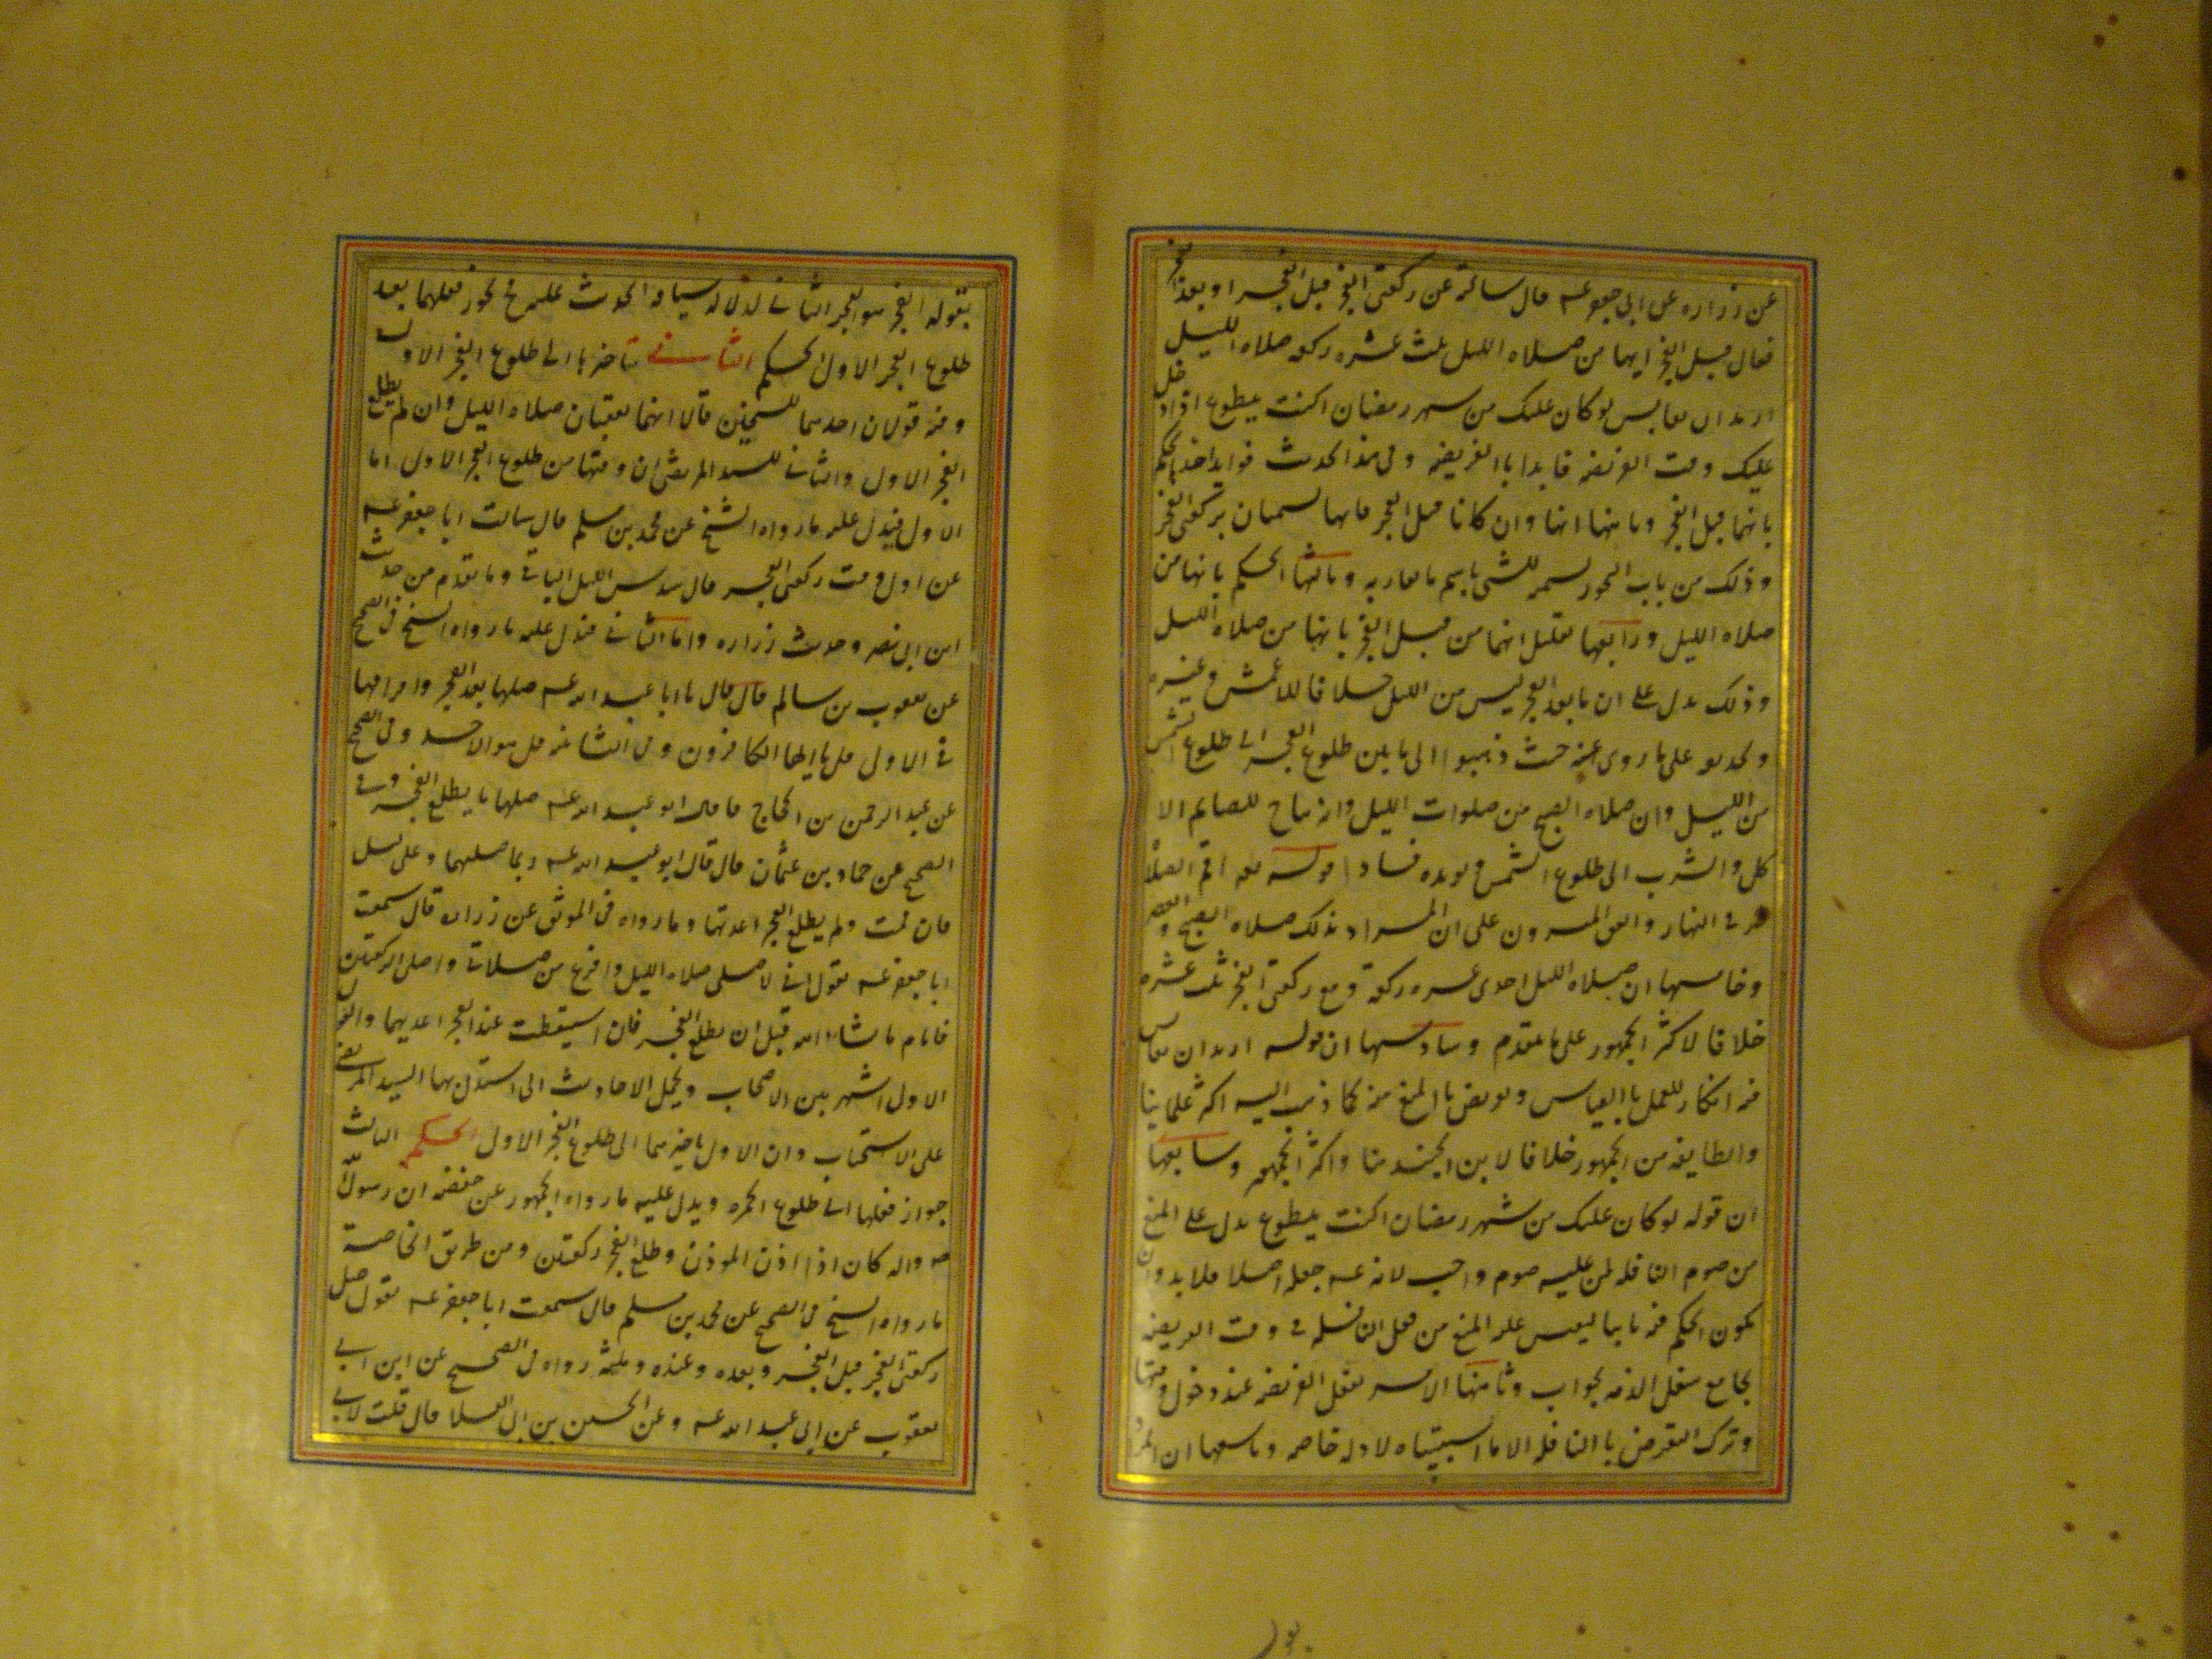 عن زراره عن ابى جعفر عـ قال سالته عن ركعتى الفجر قبل الفجر او بعد الفجر
فقال قبل الفجر انهما من صلاه الليل ثلث عشره ركعه صلاه الليل
اتريد ان تقايس لو كان عليك من شهر رمضان اكنت تتطوع اذا دخل
عليك وقت الفريضه فابدا باالفريضه وفى هذا الحديث فوايد احدها الحكم
بانهما قبل الفجر وثانيها انهما وان كانا قبل الفجر فانهما تسميان بركعتى الفجر
وذلك من باب التجوز تسميه للشى باسم ما يقاربه وثالثها الحكم بانهما من
صلاه الليل ورابعها تعليل انهما من قبل الفجر بانهما من صلاه الليل
وذلك يدل على ان ما بعد الفجر ليس من الليل خلافا للاعمش وغيره
وحذيفه على ما روى عنه حيث ذهبوا الى ما بين طلوع الفجر الى طلوع الشمس
من الليل وان صلاه الصبح من صلوات الليل وانه يباح للصايم الا
كل والشرب الى طلوع الشمس ويويده فسادا قوله تعه اقم الصلاه
طرفى النهار واتفق المفسرون على ان المراد بذلك صلاه الصبح والعصر
وخامسها ان صلاه الليل احدى عشره ركعه ومع ركعتى الفجر ثلث عشره
خلافا لاكثر الجمهور على ما تقدم وسادسها ان قوله اتريد ان تقايس
فيه انكار للعمل باالقياس وتعريض باالمنع منه كما ذهب اليه اكثر علماينا
والطايفه من الجمهور خلافا لابن الجنيد منا واكثر الجمهور وسابعها
ان قوله لو كان عليك من شهر رمضان اكنت تتطوع يدل على المنع
من صوم النافله لمن عليه صوم واجب لانه عـ جعله اصلا فلا بد وان
يكون الحكم فيه ثابتا ليقيس عليه المنع من فعل النافله فى وقت الفريضه
بجامع شغل الذمه بواجب وثامنها الامر بفعل الفريضه عند دخول وقتها
وترك التعرض باالنافله الا ما استثناه لادله خاصه وتاسعها ان المراد
بقوله الفجر هو الفجر الثانى لدلاله سياقه الحديث عليه فيجوز فعلهما بعد
طلوع الفجر الاول الحكم الثانى تاخرها الى طلوع الفجر الاول
وفيه قولان احدهما للشيخين قالا انهما يعقبان صلاه الليل وان لم يطلع
الفجر الاول والثانى للسيد المرتضى ان وقتها من طلوع الفجر الاول اما
الاول فيدل عليه ما رواه الشيخ عن محمد بن مسلم قال سالت ابا جعفر عـ
عن اول وقت ركعتى الفجر قال سدس الليل الباقى وما تقدم من حديث
ابن ابى نصر وحديث زراره واما الثانى فيدل عليه ما رواه الشيخ فى الصحيح
عن يعقوب بن سالم قال قال ابا عبد الله عـ صلهما بعد الفجر واقرا فيهما
فى الاولى قل يا ايها الكافرون وفى الثانيه قل هو الله احد وفى الصحيح
عن عبد الرحمن بن الحجاج قال قال ابو عبد الله عـ صلهما ما يطلع الفجر وفى
الصحيح عن حماد بن عثمان قال قال ابو عبد الله عـ ربما صليتهما وعلى ليل
فان نمت ولم يطلع الفجر اعدتها وما رواه فى الموثق عن زراره قال سمعت
ابا جعفر عـ يقول انى لاصلى صلاه الليل وافرغ من صلاتى واصلى الركعتين
فانام ما شاء الله قبل ان يطلع الفجر فان استيقظت عند الفجر اعدتهما والقول
الاول اشهر بين الاصحاب ويحمل الاحاديث التى استدل بها السيد المرتضى
على الاستحباب وان الاولى تاخيرهما الى طلوع الفجر الاول الحكم الثالث
جواز فعلها الى طلوع الحمره ويدل عليه ما رواه الجمهور عن حفصه ان رسول الله
صـ واله كان اذا اذن الموذن وطلع الفجر ركعتين ومن طريق الخاصه
ما رواه الشيخ فى الصحيح عن محمد بن مسلم قال سمعت ابا جعفر عـ يقول صل
ركعتى الفجر قبل الفجر وبعده وعنده ومثله رواه فى الصحيح عن ابن ابى
يعقوب عن ابى عبد الله عـ وعن الحسين بن ابى العلا قال قلت لابى